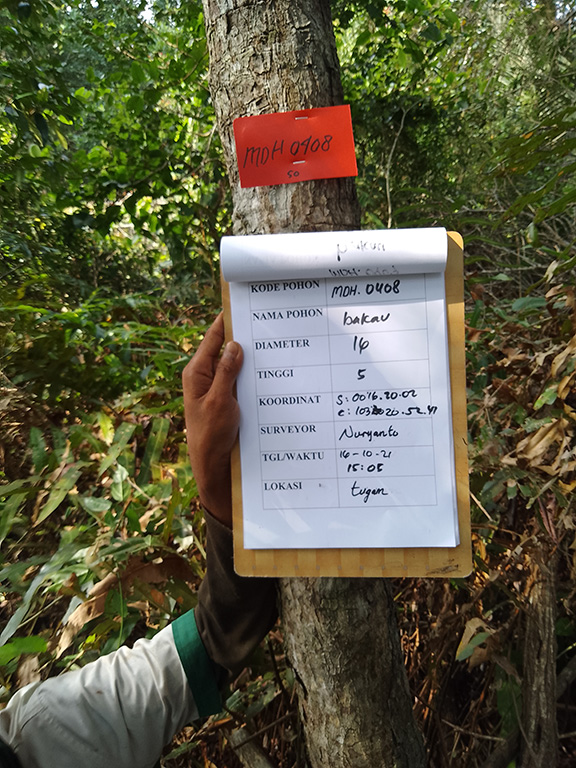 MDH 0408
50
KODE POHON MDH. 0408
NAMA POHON bakau
DIAMETER 16
TINGGI 5
KOORDINAT S: 0016.20.02
e: 103020.52.47
SURVEYOR Nuryanto
TGL/WAKTU 16-10-21
15:05
LOKASI tugan